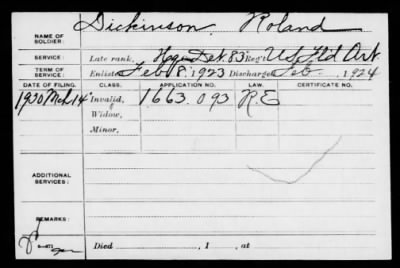 Dickinson, Roland
NAME OF SOLDIER:
SERVICE: Late rank, Hq. Det. 83 Reg't U.S. Fld Art.
TERM OF SERVICE: Enlisted Feb 8, 1923 Discharged Feb, 1924
DATE OF FILING. CLASS. APPLICATION NO. LAW. CERTIFICATE NO.
1930 Mch 14 Invalid, 1663.093 R.E
Widow,
Minor,
ADDITIONAL SERVICES:
REMARKS:
6-4173
Died , 1 , at